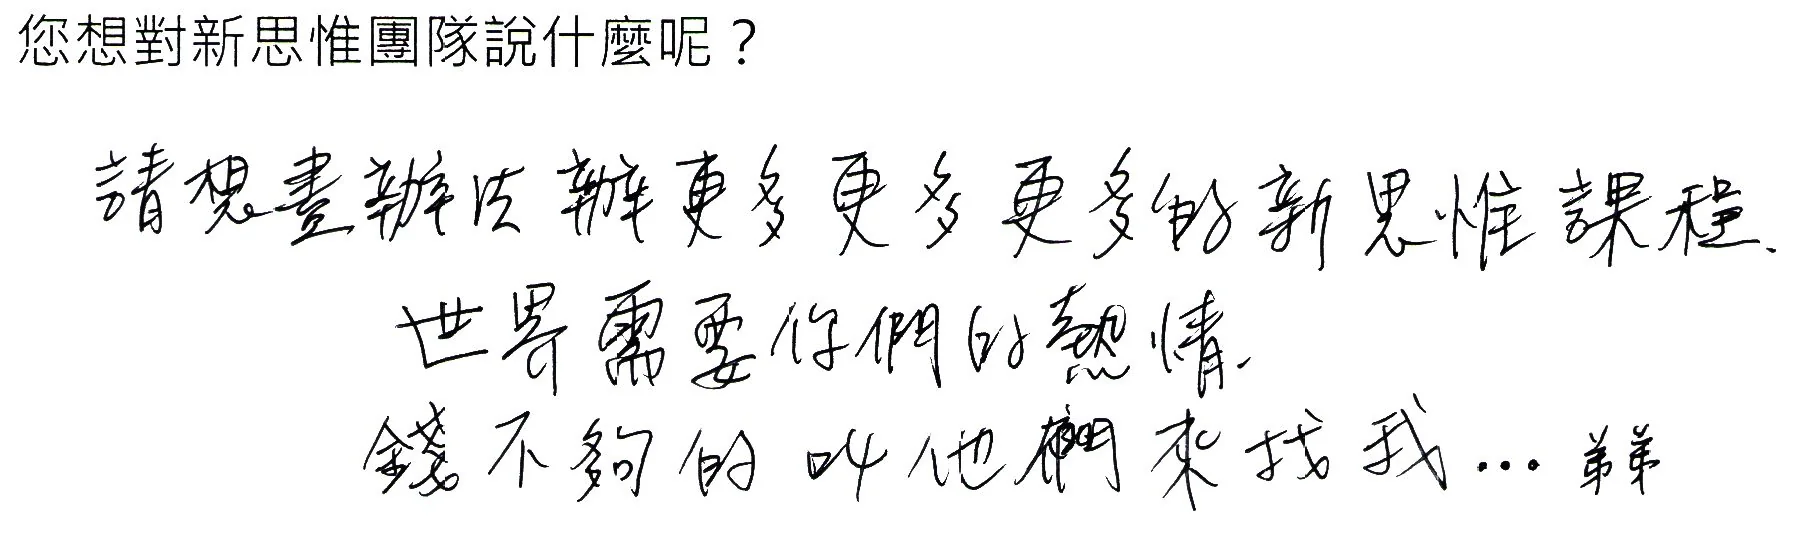 您想對新思惟團隊說什麼呢？
請想盡辦法辦更多更多更多的新思惟課程.
世界需要你們的熱情.
錢不夠的叫他們來找我... 弟弟